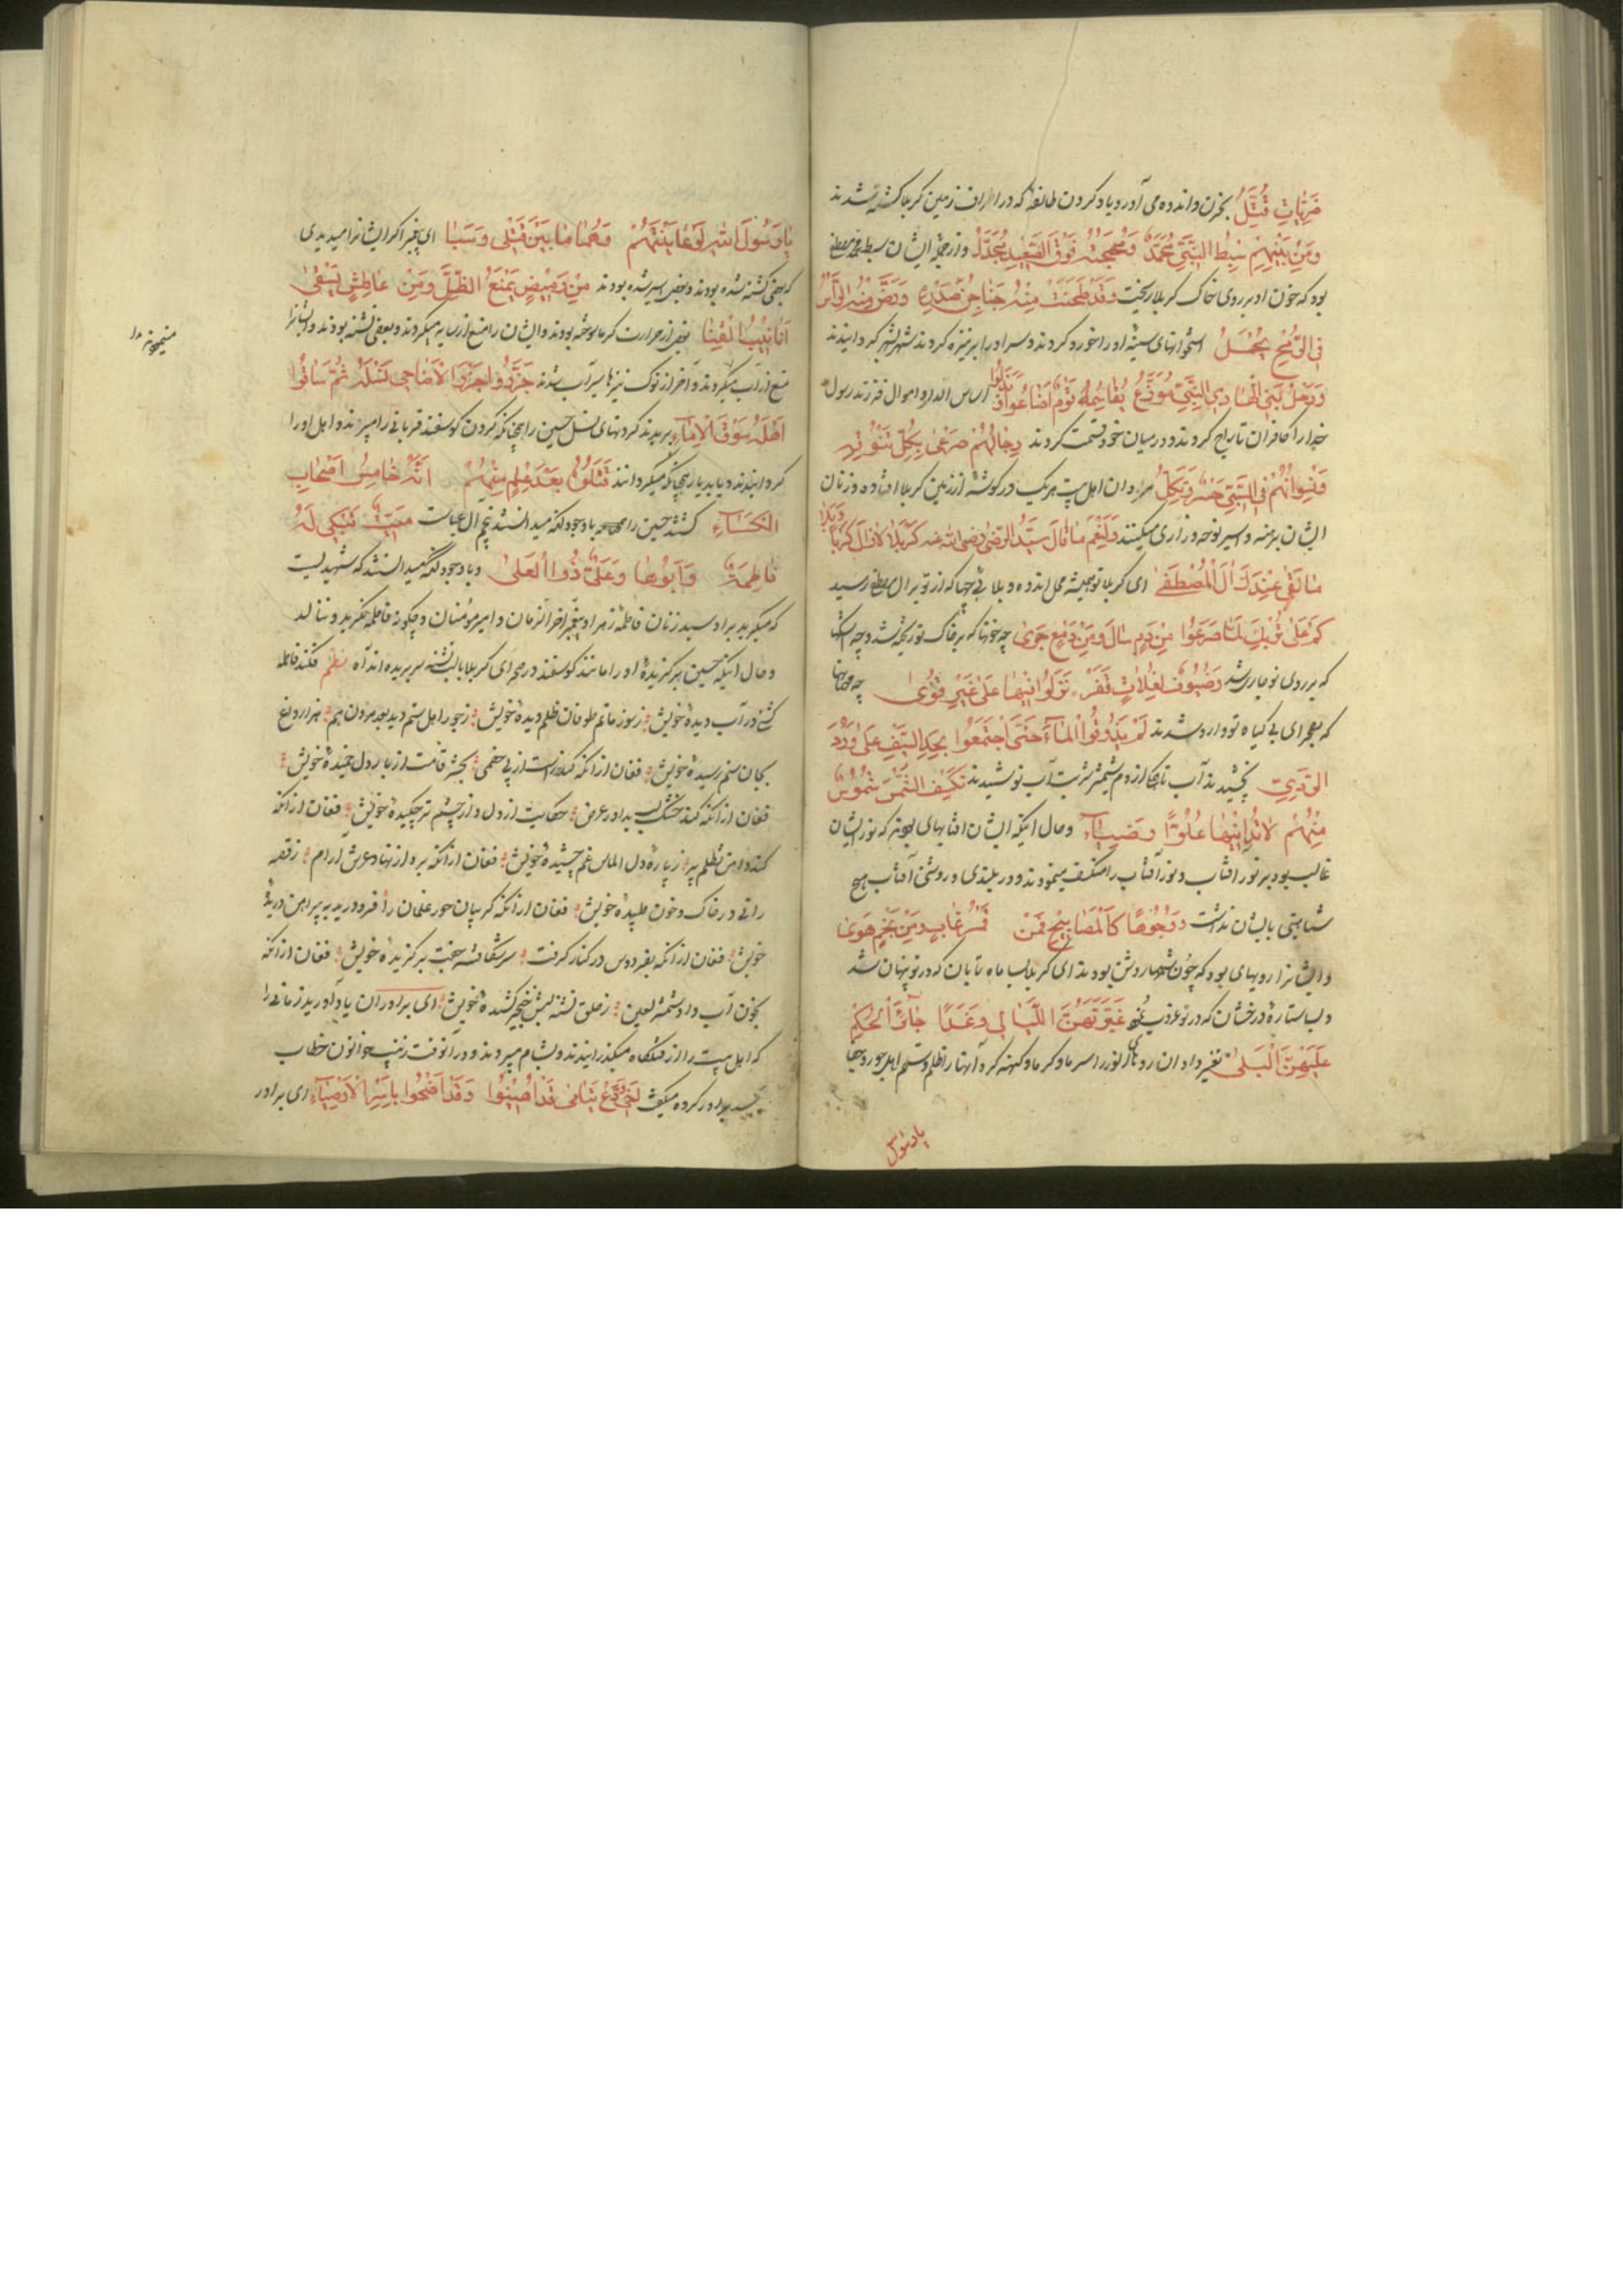 ضربات قتل بحزن و اندوه می آورد یاد کردن طائفهٔ که در اطراف زمین کربلا کشته شدند
و من بینهم سبط النبی محمد و مهجته فوق الصعید مجدل و از جمله ایشان سبط محمد مصطفی
بود که خون او بر روی خاک کربلا ریخت و قد طحنت منه جناجن صدره و رض منه الرأس
فی الرمح یحمل استخوانهای سینهٔ او را خورد کردند و سر او را بر نیزه کردند شهر بشهر کردانیدند
و رحل بنی الهادی النبی موزع یقاسمه قوم اضاعوا و بدلوا اساس اندار و اموال فرزند رسول
خدا را کافران تاراج کردند و در میان خود قسمت کردند رجالهم صرعی بکل تنوفة
و نسوانهم فی السبی حسری و ثکل مردان اهل بیت هر یک در کوشهٔ از زمین کربلا افتاده و زنان
ایشان برهنه و اسیر نوحه و زاری میکنند و لنعم ما قال سید الرضی رضی الله عنه کربلا لا زال کربا و بلا
ما لقی عندک آل المصطفی ای کربلا تو همیشه محل اندوه و بلائی چها که از تو بر آل مصطفی رسید
کم علی تربک لما صرعوا من دم سال و من دمع جری چه خونها که بر خاک تو ریخته شد و چه اشکها
که بر روی تو جاری شد و ضیوف لفلاة قفر نزلوا فیها علی غیر قری چه مهمانها
که بصحرای بی کیاه تو وارد شدند لم یذوقوا الماء حتی اجتمعوا بحد السیف علی ورد
الردی نچشیدند آب تا آنکه از دم شمشیر شربت آب نوشیدند تکسف الشمس شموس
منهم لا تدانیها علوا و ضیاء و حال اینکه ایشان افتابهای بودند که نور ایشان
غالب بود بر نور افتاب و نور آفتاب را منکسف مینمودند و در بلندی و روشنی آفتاب هیچ
شباهتی بایشان نداشت و وجوها کالمصابیح فمن قمر غاب و من نجم هوی
و ایشانرا رویهای بود که چون شمعها روشن بودند ای کربلا بسا ماه تابان که در تو پنهان شد
و بسا ستارهٔ درخشان که در تو غروب نمود غیرتهن اللیالی و غدا جائر الحکم
علیهن البلی تغیر داد ان روهای انور را سرما و کرما و کهنه کرد آنها را ظلم و ستم اهل جور و جفا
یا رسول
یا رسول الله لو عاینتهم و هم ما بین قتلی و سبا ای پیغمبر اکر ایشانرا میدیدی
که بعضی کشته شده بودند و بعضی اسیر شده بودند من رمیض یمنع الظل و من عاطش یسقی
انابیب القنا بعضی از حرارت کرما سوخته بودند و ایشان را منع از سایه میکردند و بعضی تشنه بودند و ایشانرا
منع از آب میکردند و آخر از نوک نیزها سیراب شدند جزروا جزر الاضاحی نسله ثم ساقوا
اهله سوق الاماء بریدند کردنهای نسل حسین را همچنانکه کردن کوسفند قربانی را میبرند و اهل او را
کردانیدند دیار بدیار همچنانکه میکردانند قتلوه بعد علم منهم انه خامس اصحاب
الکساء کشتند حسین را با وجود انکه میدانستند پنجم آل عباست میت تبکی له
فاطمة و ابوها و علی ذو العلی و با وجود انکه میدانستند که شهیدیست
که میکرید بر او سیده زنان فاطمه زهرا و پیغمبر آخر الزمان و امیر مؤمنان و چکونه فاطمه نکرید و ننالد
و حال اینکه حسین برکزیدهٔ او را مانند کوسفند در صحرای کربلا با لب تشنه سر بریده اند آه نظم فکند فاطمه
کشتی در آب دیدهٔ خویش ز سوز ماتم طوفان ظلم دیدهٔ خویش ز جور اهل ستم دید بعد مردن هم هزار داغ
بجان ستم رسیدهٔ خویش فغان از انکه کند راست از پی خصمی بحشر قامت از بار دل خمیدهٔ خویش
فغان از انکه کند خشک لب بداور عرض حکایت از دل و از چشم تر چکیدهٔ خویش فغان از انکه
کند دامن تظلم پر ز پارهٔ دل الماس غم چشیدهٔ خویش فغان از انکه برد از نهاد عرش آرام ز قصهٔ
رانی در خاک و خون طپیدهٔ خویش فغان از انکه کریبان حور غلمان را فرو درید به پیراهن دریدهٔ
خویش فغان از انکه بفردوس در کنار کرفت سر شکافتهٔ جفت برکزیدهٔ خویش فغان از انکه
بخون آب داد شمر لعین ز حلق تشنه لبش خنجر کشندهٔ خویش ای برادران یاد آورید زمانی را
که اهل بیت را از قتلکاه میکذرانیدند و بشام میبردند و در آنوقت زینب خواتون خطاب
بجسد برادر کرده میکفت اخی ودع یتامی قد اصیبوا و قد اضحوا باسر الادعیاء ای برادر